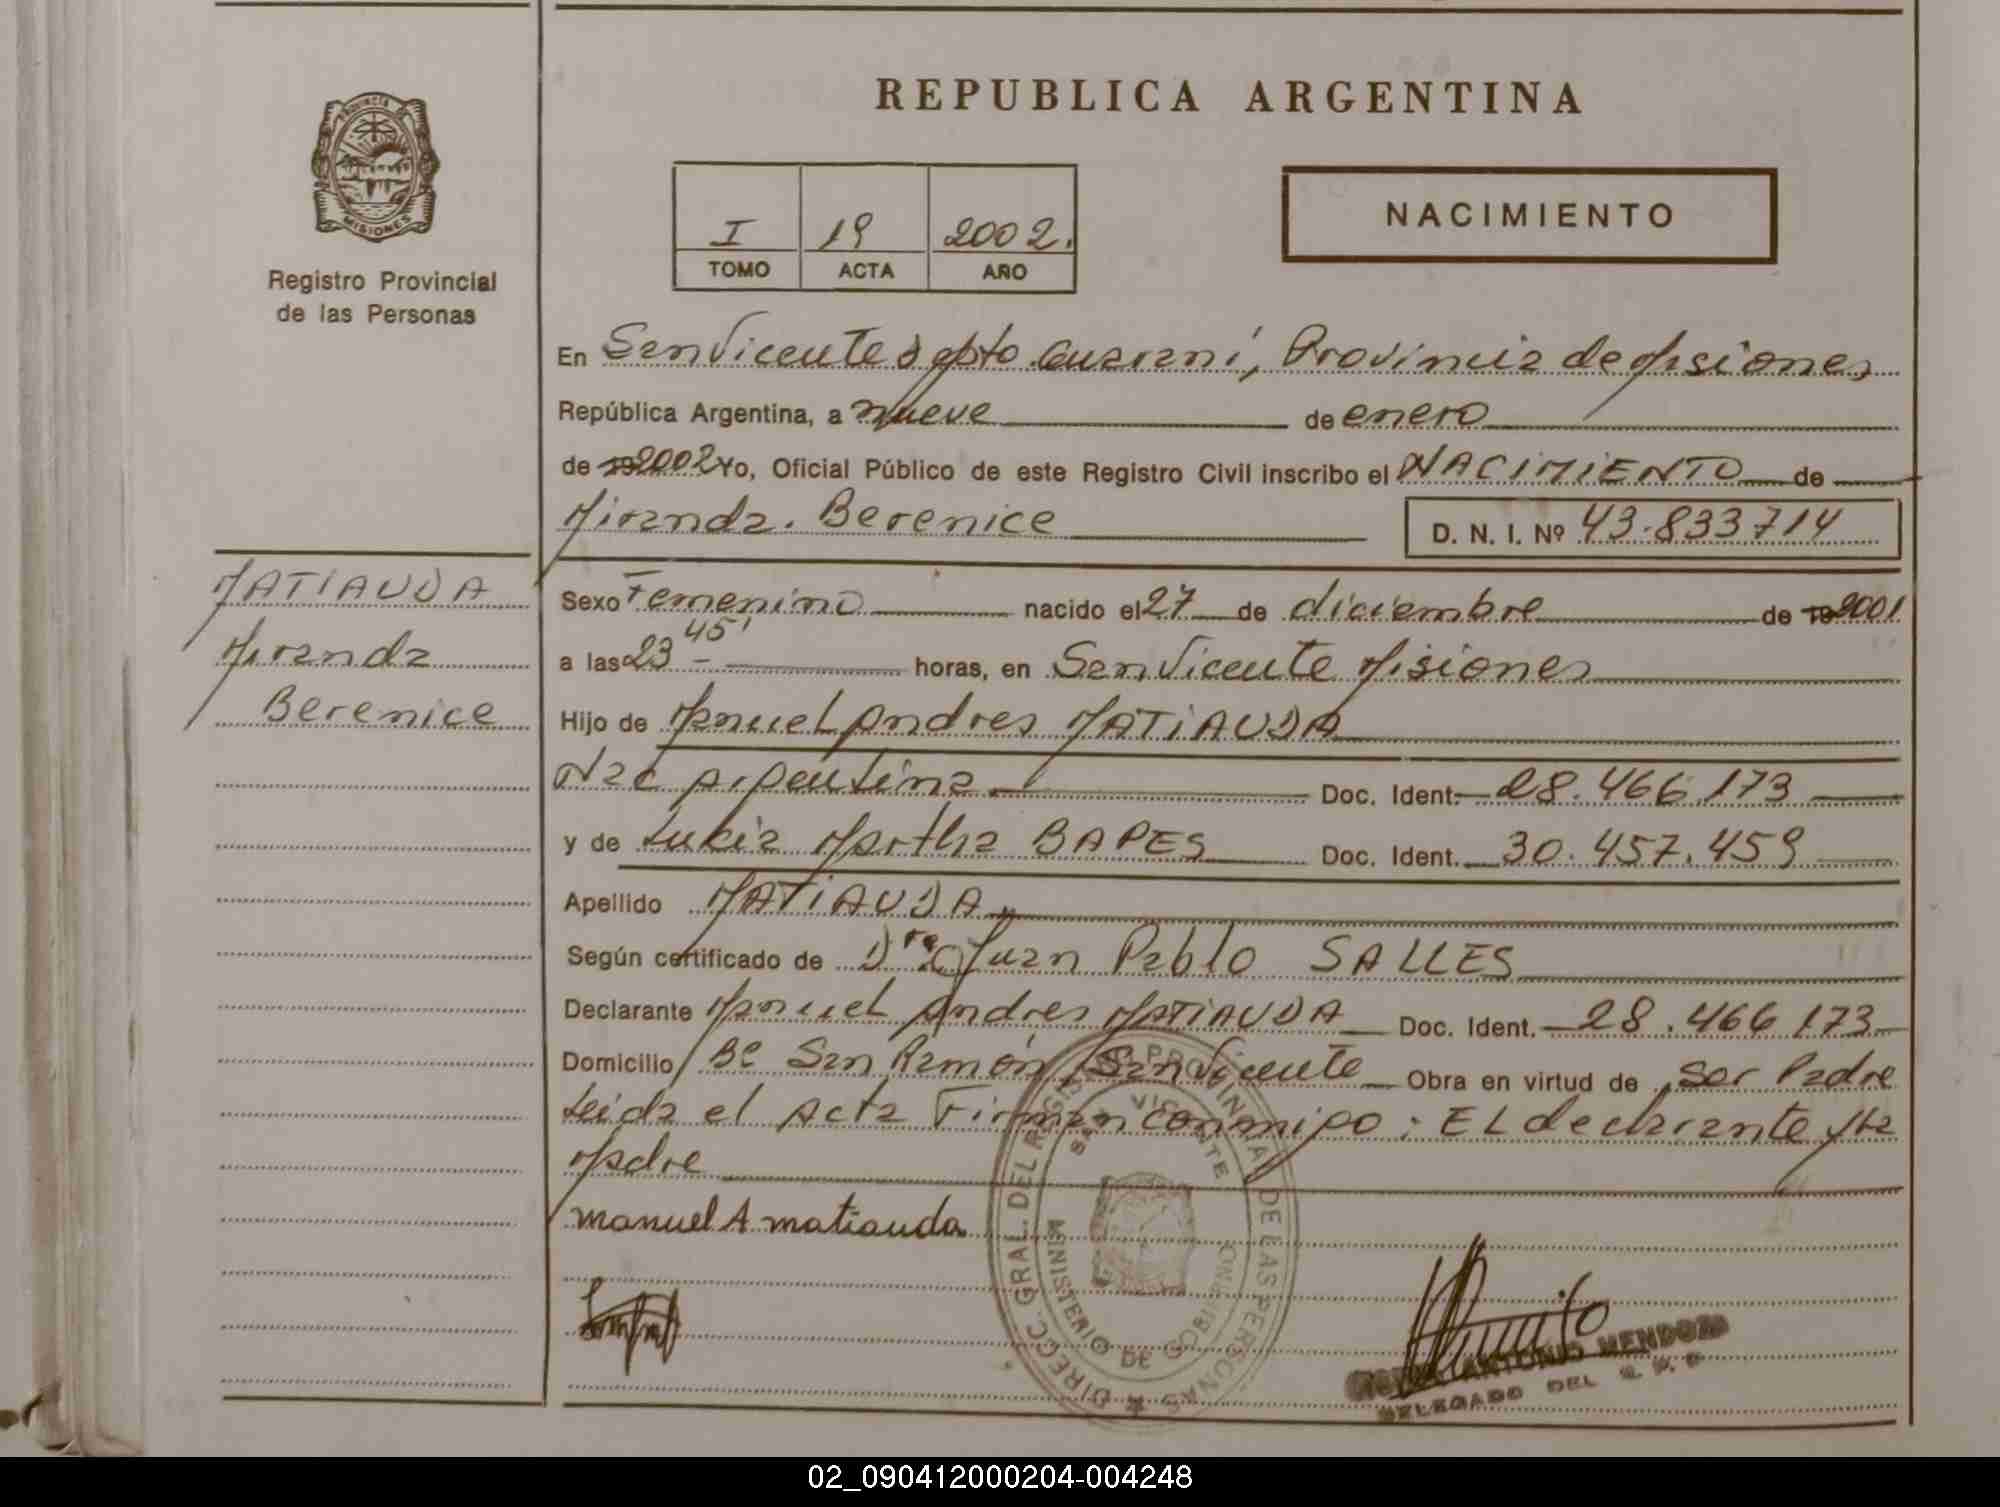 REPUBLICA ARGENTINA
PROVINCIA
MISIONES
Registro Provincial
de las Personas
I 19 2002.
TOMO ACTA AÑO
NACIMIENTO
En San Vicente dpto. Guaraní, Provincia de Misiones
República Argentina, a nueve de enero
de 2002 Yo, Oficial Público de este Registro Civil inscribo el NACIMIENTO de
Miranda. Berenice D. N. I. Nº 43.833714
MATIAUDA
Miranda
Berenice
Sexo Femenino nacido el 27 de diciembre de 2001
a las 23 45' horas, en San Vicente Misiones
Hijo de Manuel Andres MATIAUDA
Nac Argentina Doc. Ident. 28.466.173
y de Lucia Martha BAPES Doc. Ident. 30.457.459
Apellido MATIAUDA
Según certificado de Juan Pablo SALLES
Declarante Manuel Andres MATIAUDA Doc. Ident. 28.466 173
Domicilio Bº San Ramón San Vicente Obra en virtud de ser Padre
Leida el Acta Firman conmigo: EL declarante y la
Madre
manuel A matiauda
DIRECC. GRAL. DEL REGISTRO PROVINCIAL DE LAS PERSONAS
SAN VICENTE
MINISTERIO DE GOBIERNO
ANTONIO MENDOZA
DELEGADO DEL R. P. P
02_090412000204-004248